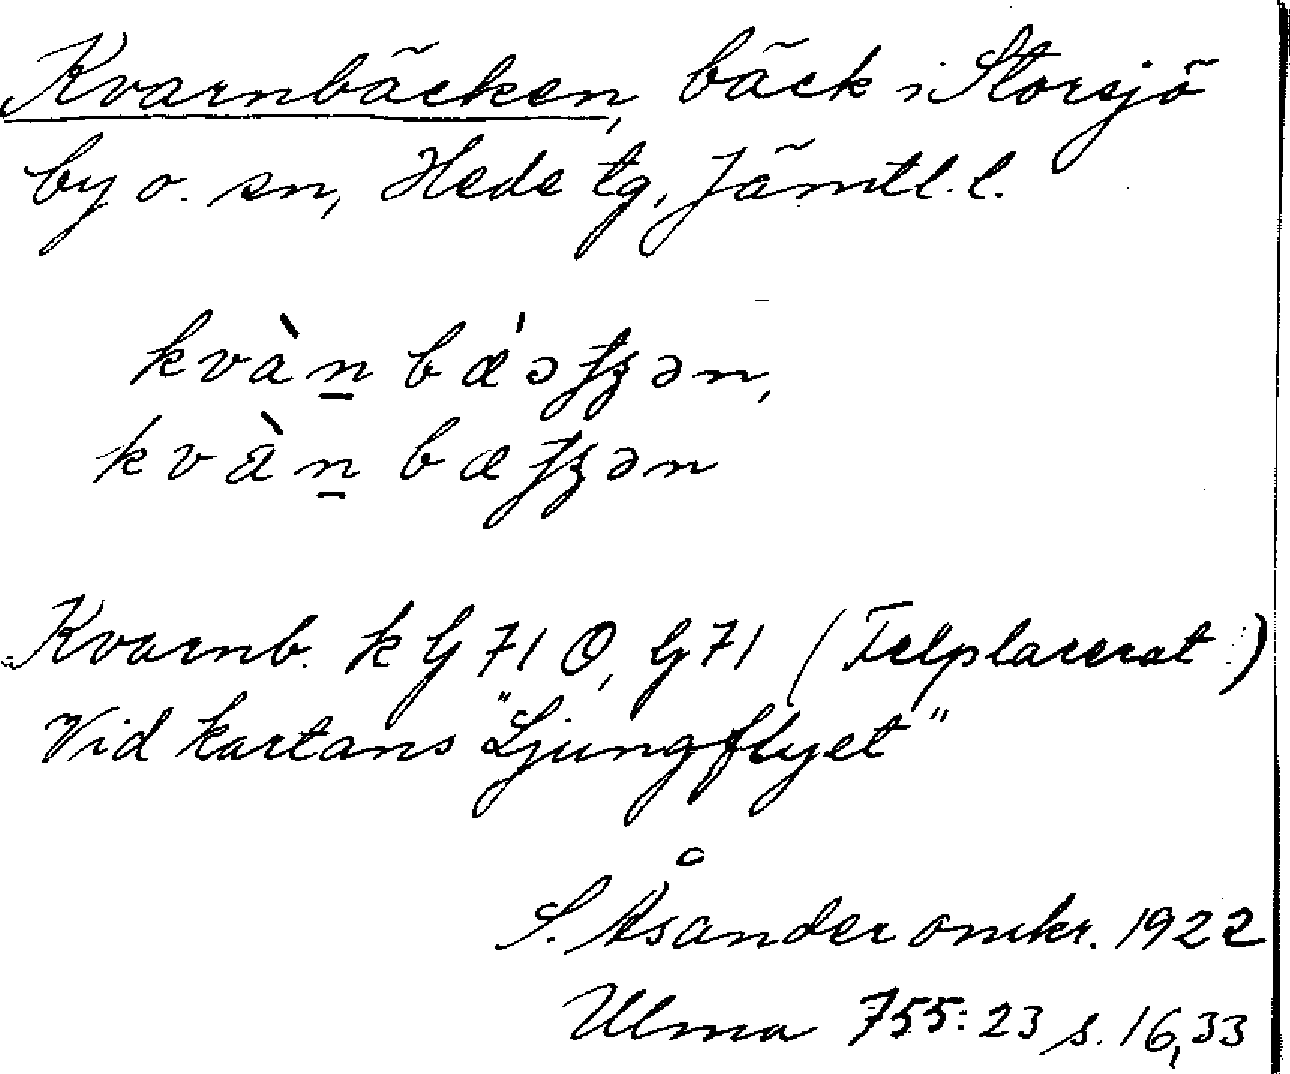 Kvarnbäcken, bäck i Storsjö
by o. sn, Hede tg, Jämtl. l.
kvàn̲ bǽəʈʐən,
kvàn̲ bæʈʐən
Kvarnb. k G 71 O, G 71 (Felplacerat!)
Vid kartans "Ljungflyet"
S. Åsander omkr. 1922
Ulma 755:23 s. 16, 33